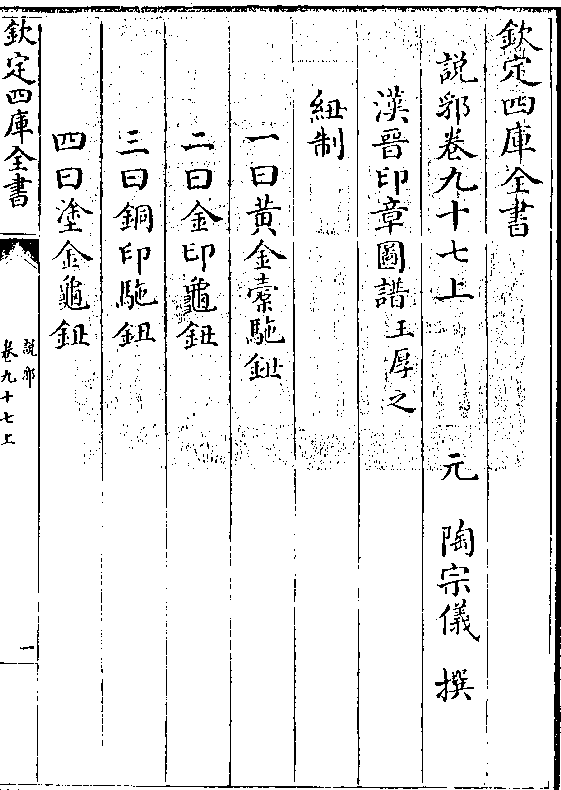 欽定四庫全書
說郛卷九十七上 元 陶宗儀 撰
漢晉印章圖譜 王厚之
紐制
一曰黃金橐駞鈕
二曰金印龜鈕
三曰銅印駞鈕
四曰塗金龜鈕
欽定四庫全書
說郛
卷九十七上
一